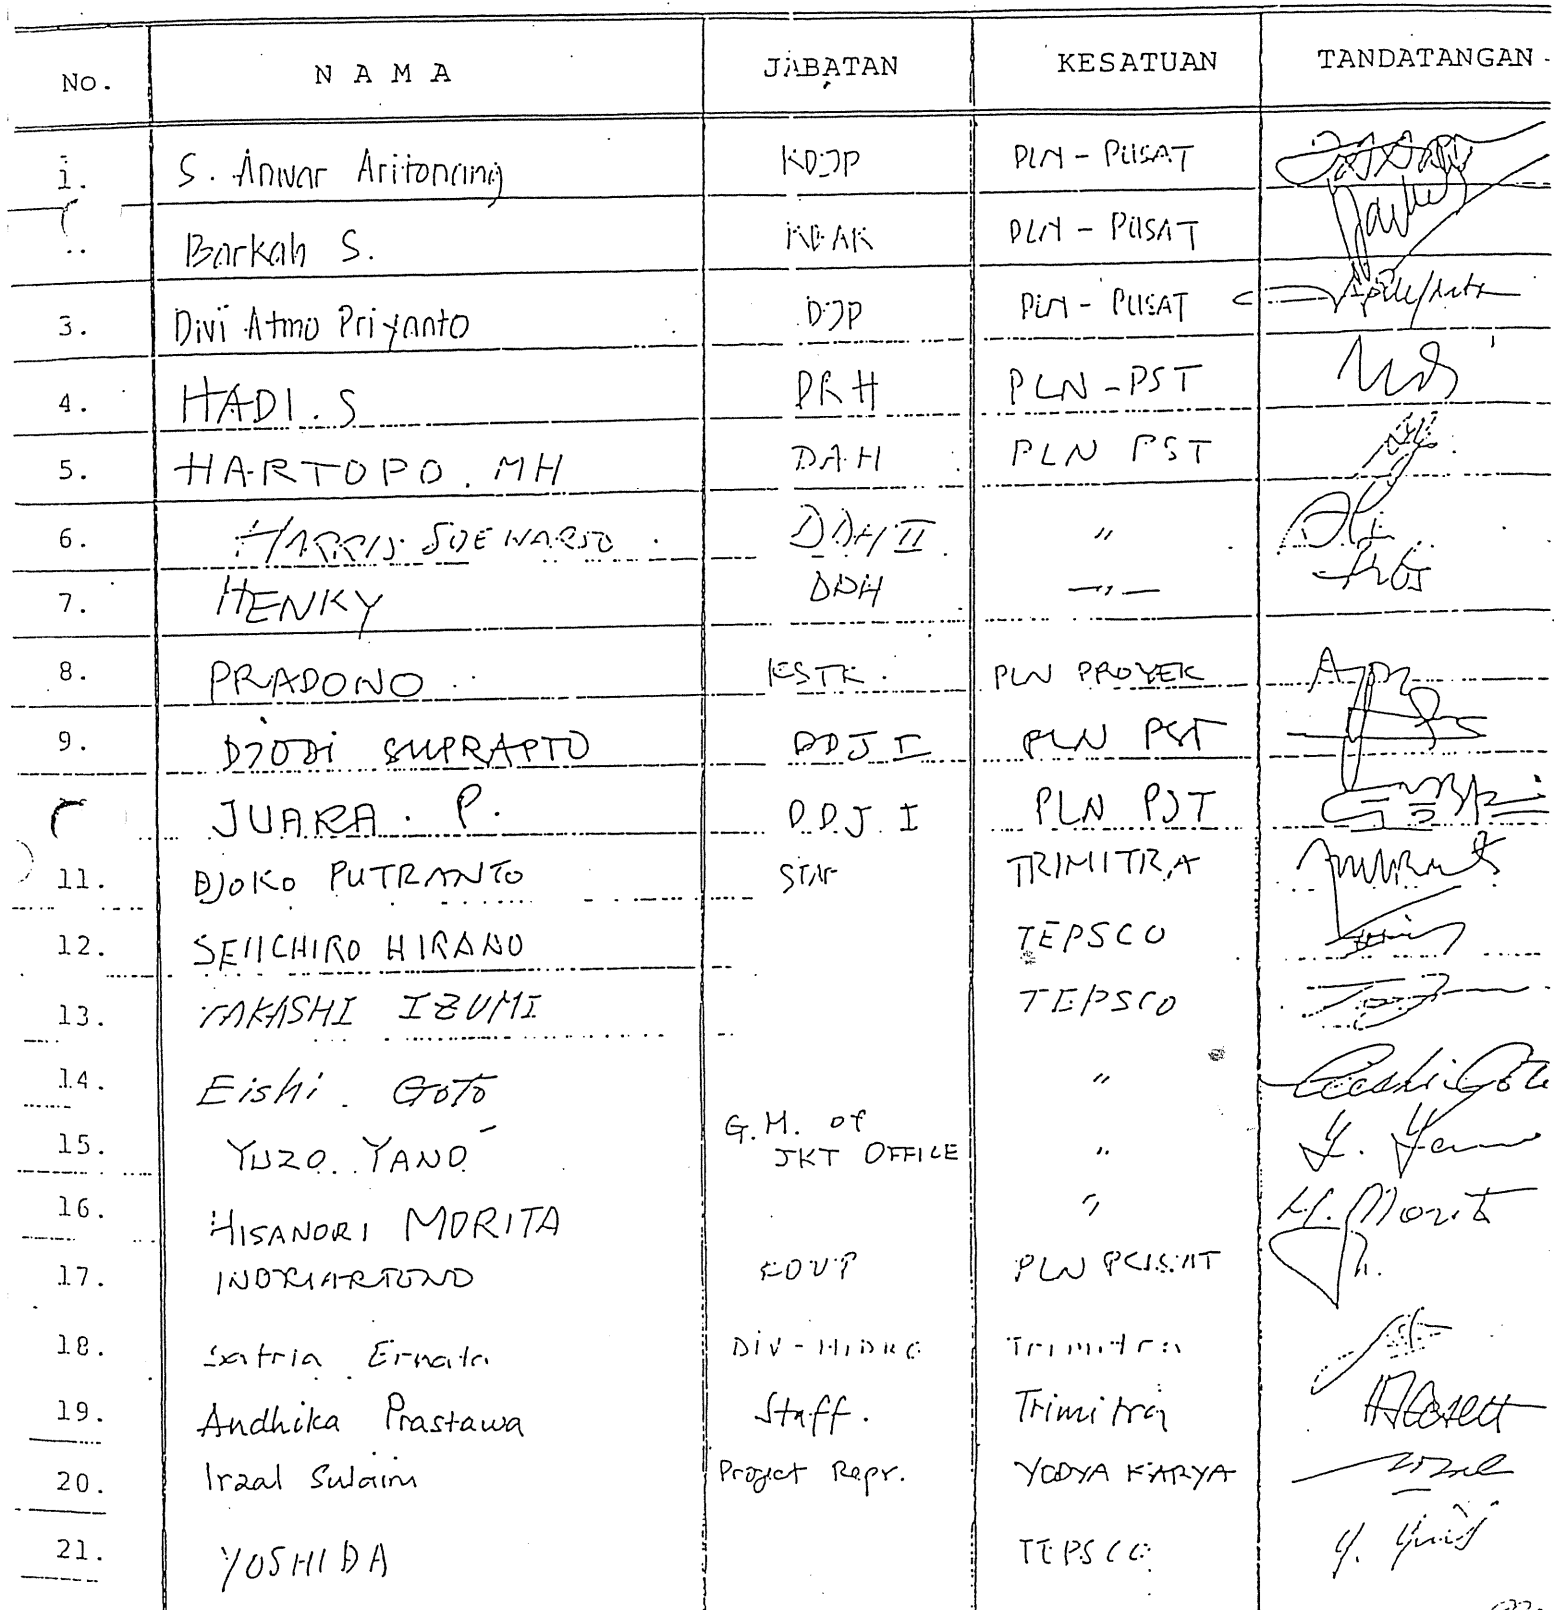 No. N A M A JABATAN KESATUAN TANDATANGAN
1. S. Anwar Aritonang KDJP PLN - PUSAT
Barkah S. KBAK PLN - PUSAT
3. Divi Atmo Priyanto DJP PLN - PUSAT
4. HADI. S DRH PLN - PST
5. HARTOPO. MH DAH PLN PST
6. HARRIS SOEWARSO DDH II "
7. HENKY DDH — " —
8. PRADONO KSTK. PLN PROYEK
9. DJODI SUPRAPTO DDJ I PLN PST
JUARA. P. DDJ I PLN PST
11. DJOKO PUTRANTO STAF TRIMITRA
12. SEIICHIRO HIRANO TEPSCO
13. TAKASHI IZUMI TEPSCO
14. Eishi Goto "
15. YUZO YANO G.M. of
JKT OFFICE "
16. HISANORI MORITA " H. Morita
17. INDRIARTONO KDUP PLN PUSAT
18. Satria Ernata DIV - HIDRO Trimitra
19. Andhika Prastawa Staff. Trimitra
20. Irzal Sulaini Project Repr. YODYA KARYA
21. YOSHIDA TEPSCO